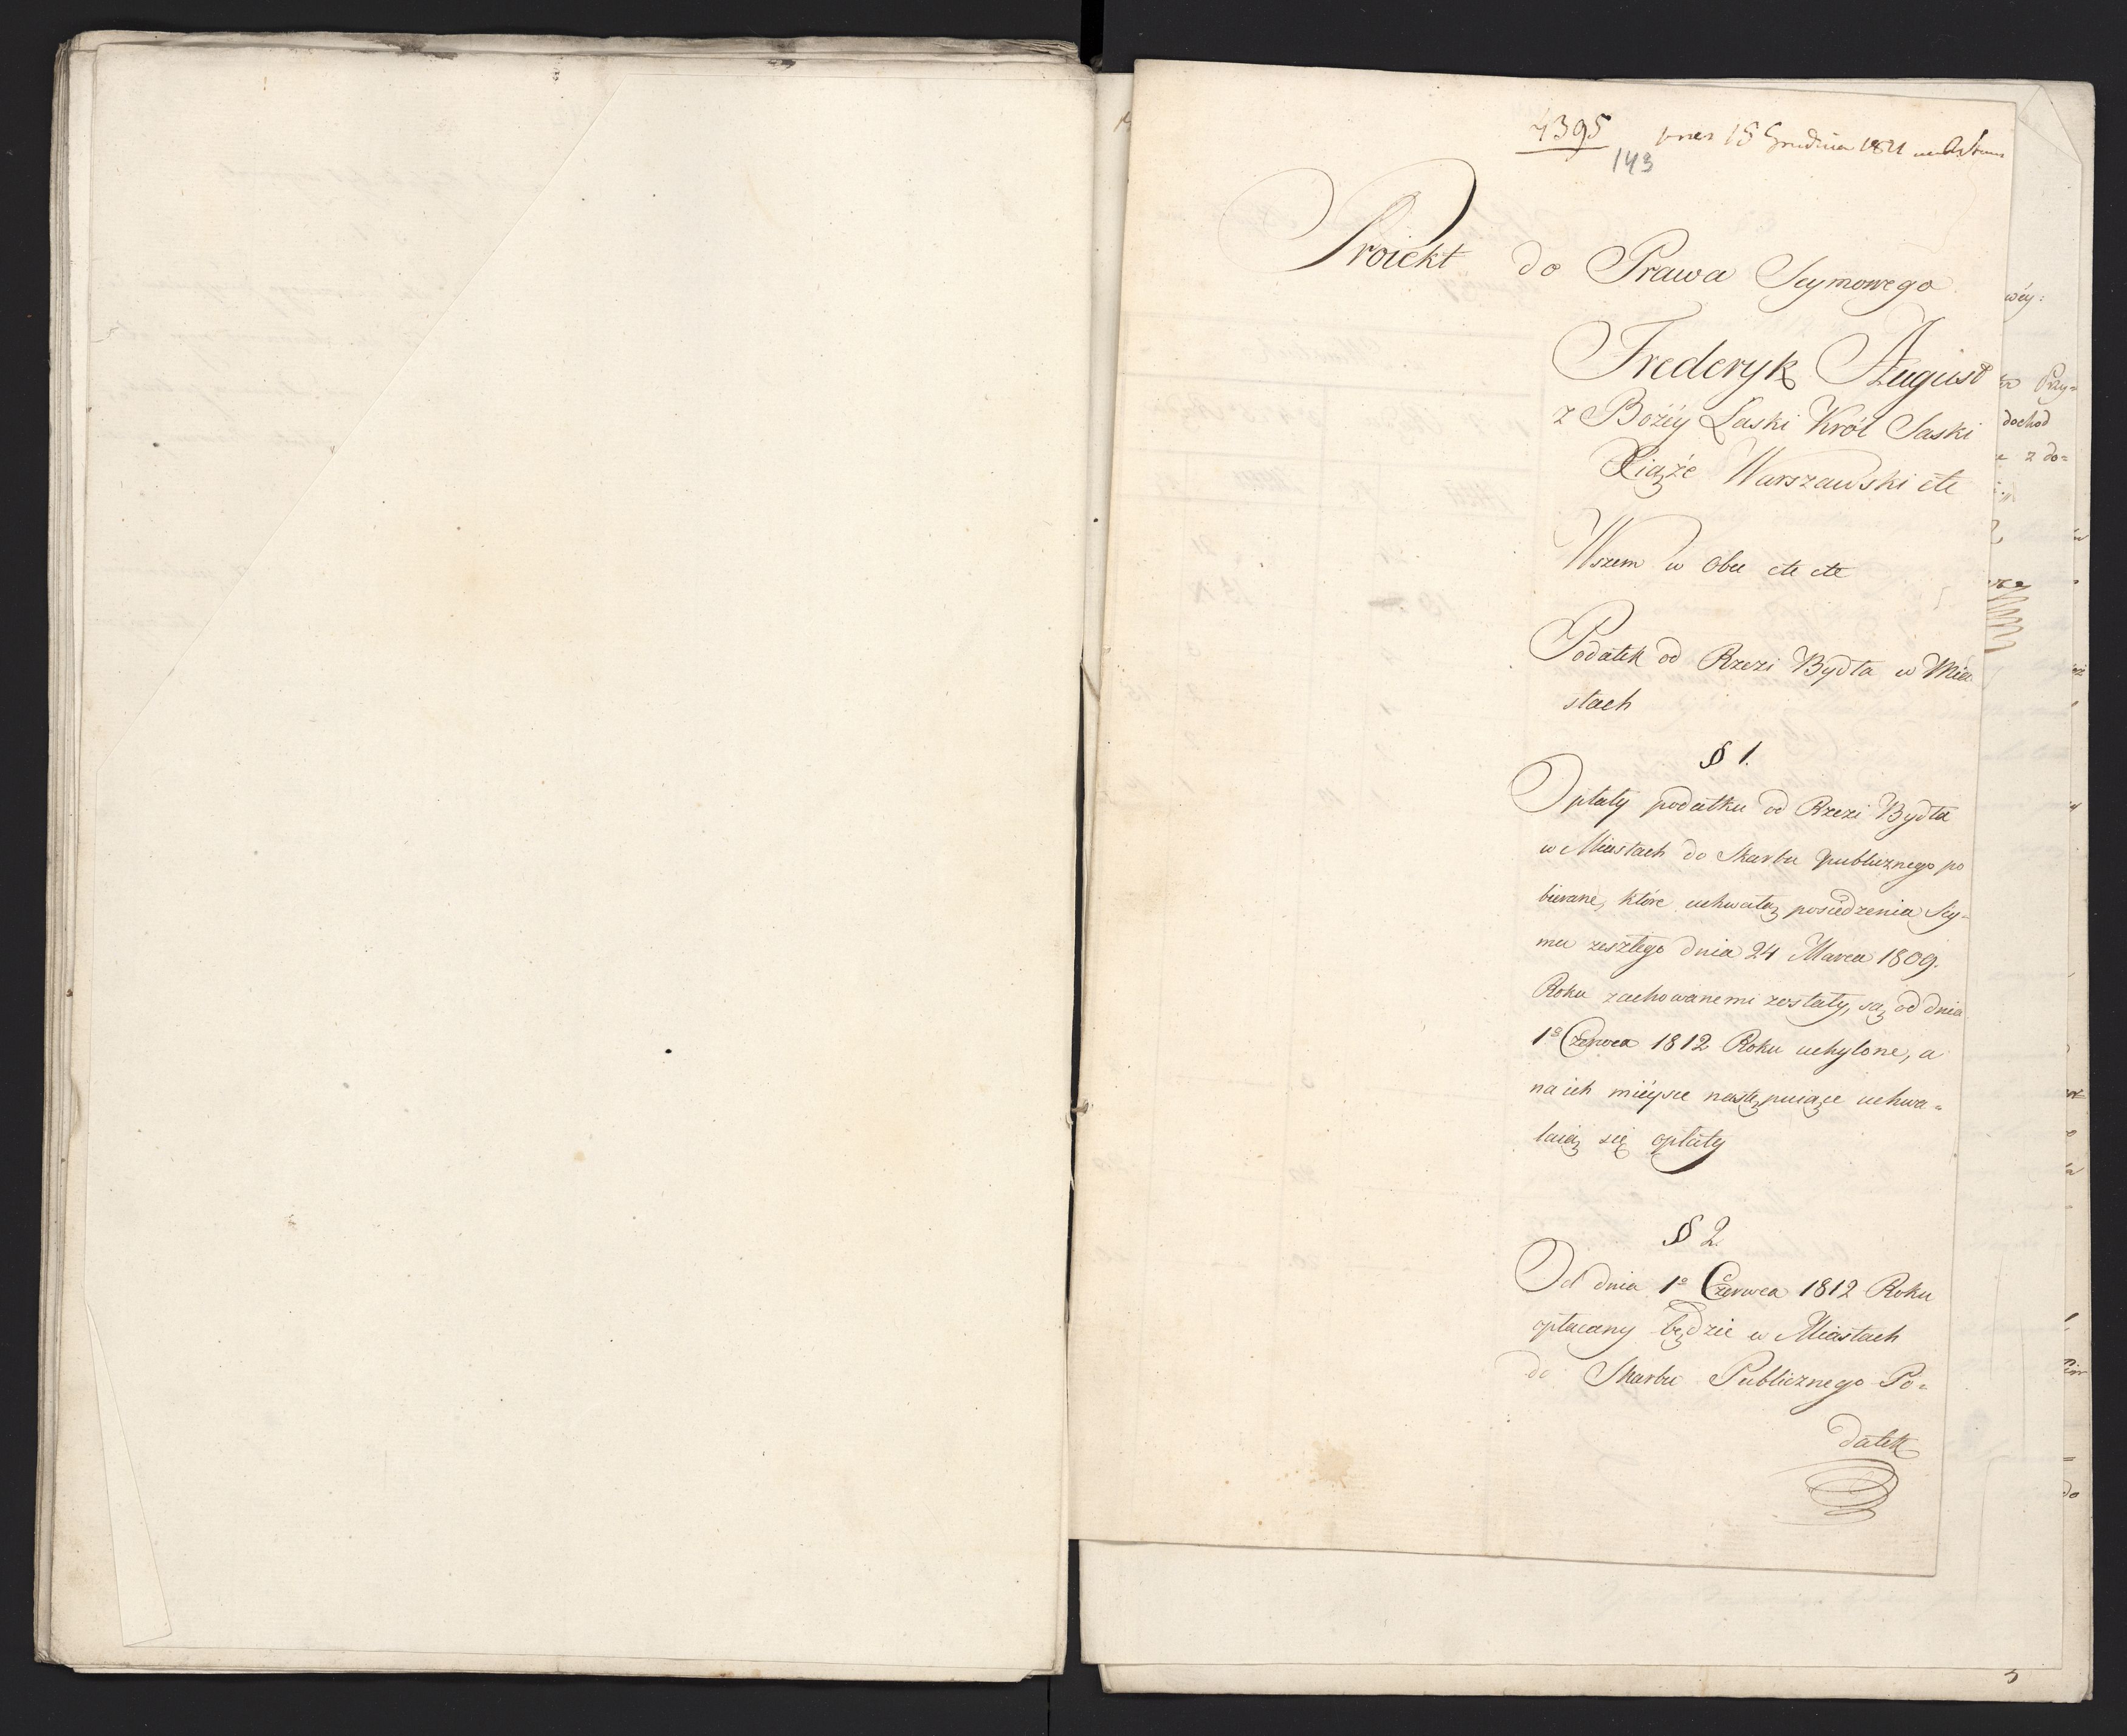 4395 pres 18 Grudnia 1811
143
Proiekt do Prawa Seymowego
Frederyk August
z Bożéy Łaski Król Saski
Xiąże Warszawski etc
Wszem w Obec etc etc
Podatek od Rzezi Bydła w Mia
stach
§ 1.
Opłaty podatku od Rzezi Bydła
w Miastach do Skarbu publicznego po
bierane, które uchwałą posiedzenia Sey=
mu zeszłego dnia 24 Marca 1809.
Roku zachowanemi zostały, są od dnia
1º Czerwca 1812 Roku uchylone, a
na ich mieysce następuiące uchwa=
laią się opłaty
§ 2.
Od dnia 1º Czerwca 1812 Roku
opłacany będzie w Miastach
do Skarbu Publicznego Po=
datek
wéy:
Przy=
dochod
z do=
do